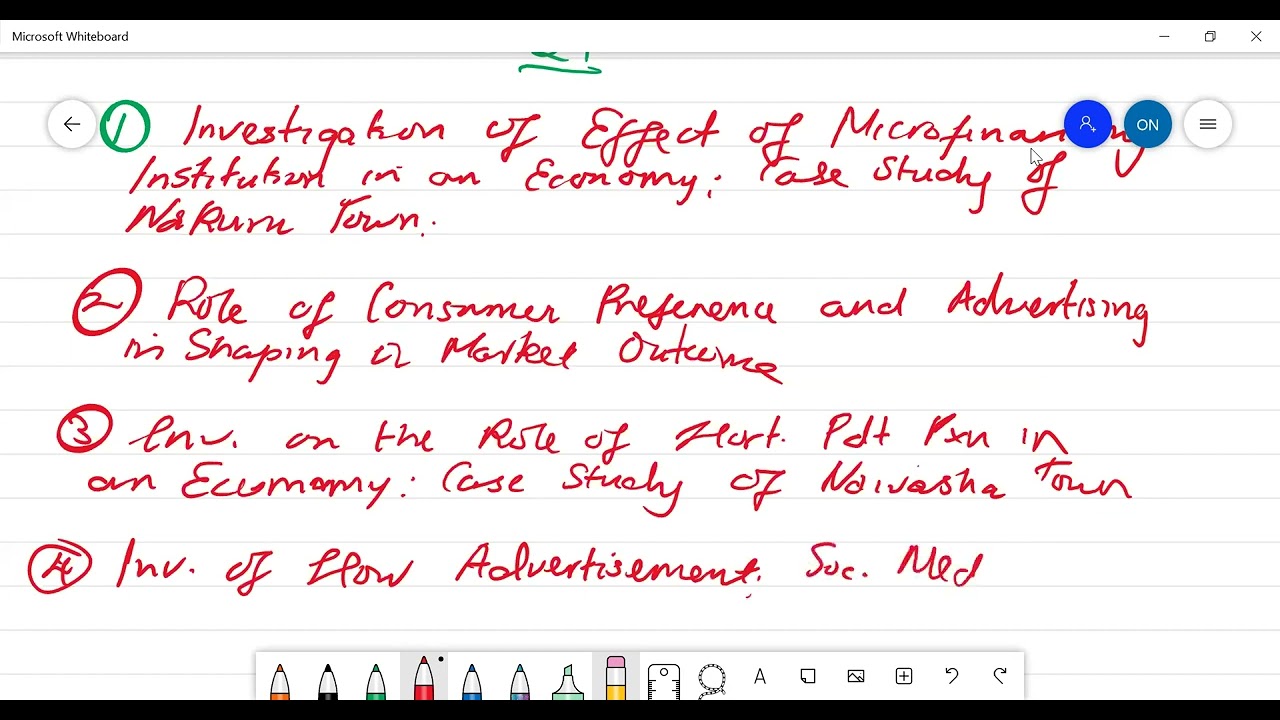 Microsoft Whiteboard
① Investigation of Effect of Microfinancing
ON
Institution in an Economy: Case Study of
Nakuru Town.
② Role of Consumer Preference and Advertising
in Shaping Market Outcome
③ Inv. on the Role of Hort. Pdt Pxn in
an Economy: Case Study of Naivasha Town
④ Inv. of How Advertisement. Soc. Med
A